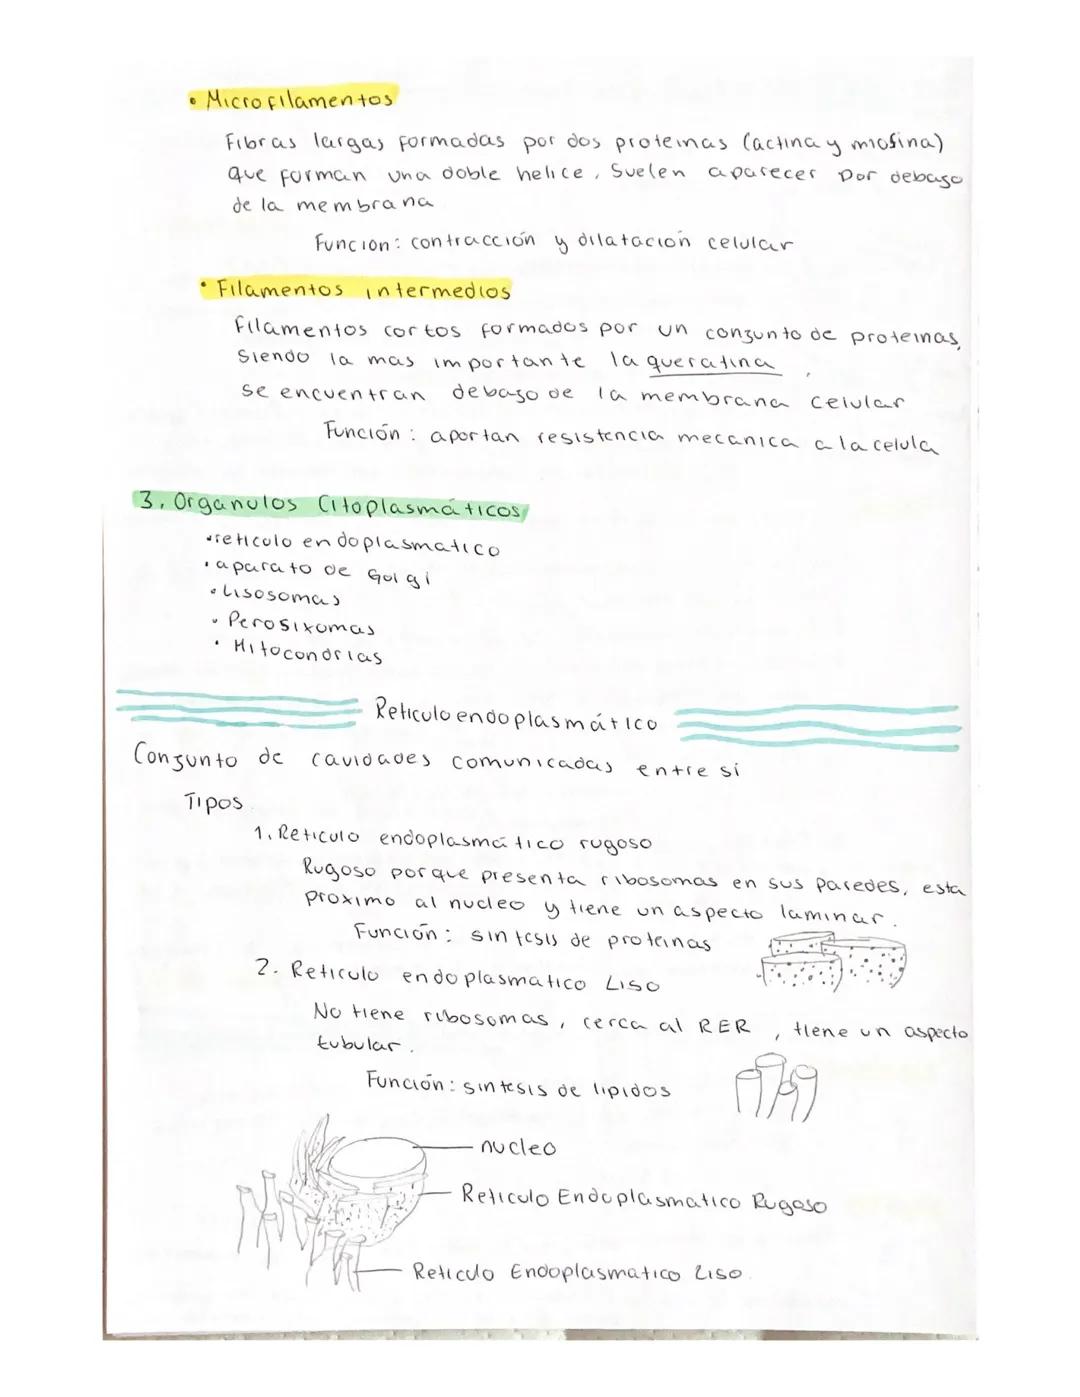 • Microfilamentos
Fibras largas formadas por dos proteinas (actina y miosina)
que forman una doble helice. Suelen aparecer por debajo
de la membrana
Funcion: contracción y dilatación celular
• Filamentos intermedios
Filamentos cortos formados por un conjunto de proteinas,
siendo la mas importante la queratina,
se encuentran debajo de la membrana celular
Función: aportan resistencia mecanica a la celula
3. Organulos Citoplasmáticos
• reticulo endoplasmatico
• aparato de Golgi
• Lisosomas
• Perosixomas
• Mitocondrias
Reticulo endoplasmático
Conjunto de cavidades comunicadas entre sí
Tipos
1. Reticulo endoplasmático rugoso
Rugoso porque presenta ribosomas en sus paredes, esta
proximo al nucleo y tiene un aspecto laminar.
Función: sintesis de proteinas
2. Reticulo endoplasmatico Liso
No tiene ribosomas, cerca al RER, tiene un aspecto
tubular.
Función: sintesis de lipidos
nucleo
Reticulo Endoplasmatico Rugoso
Reticulo Endoplasmatico Liso